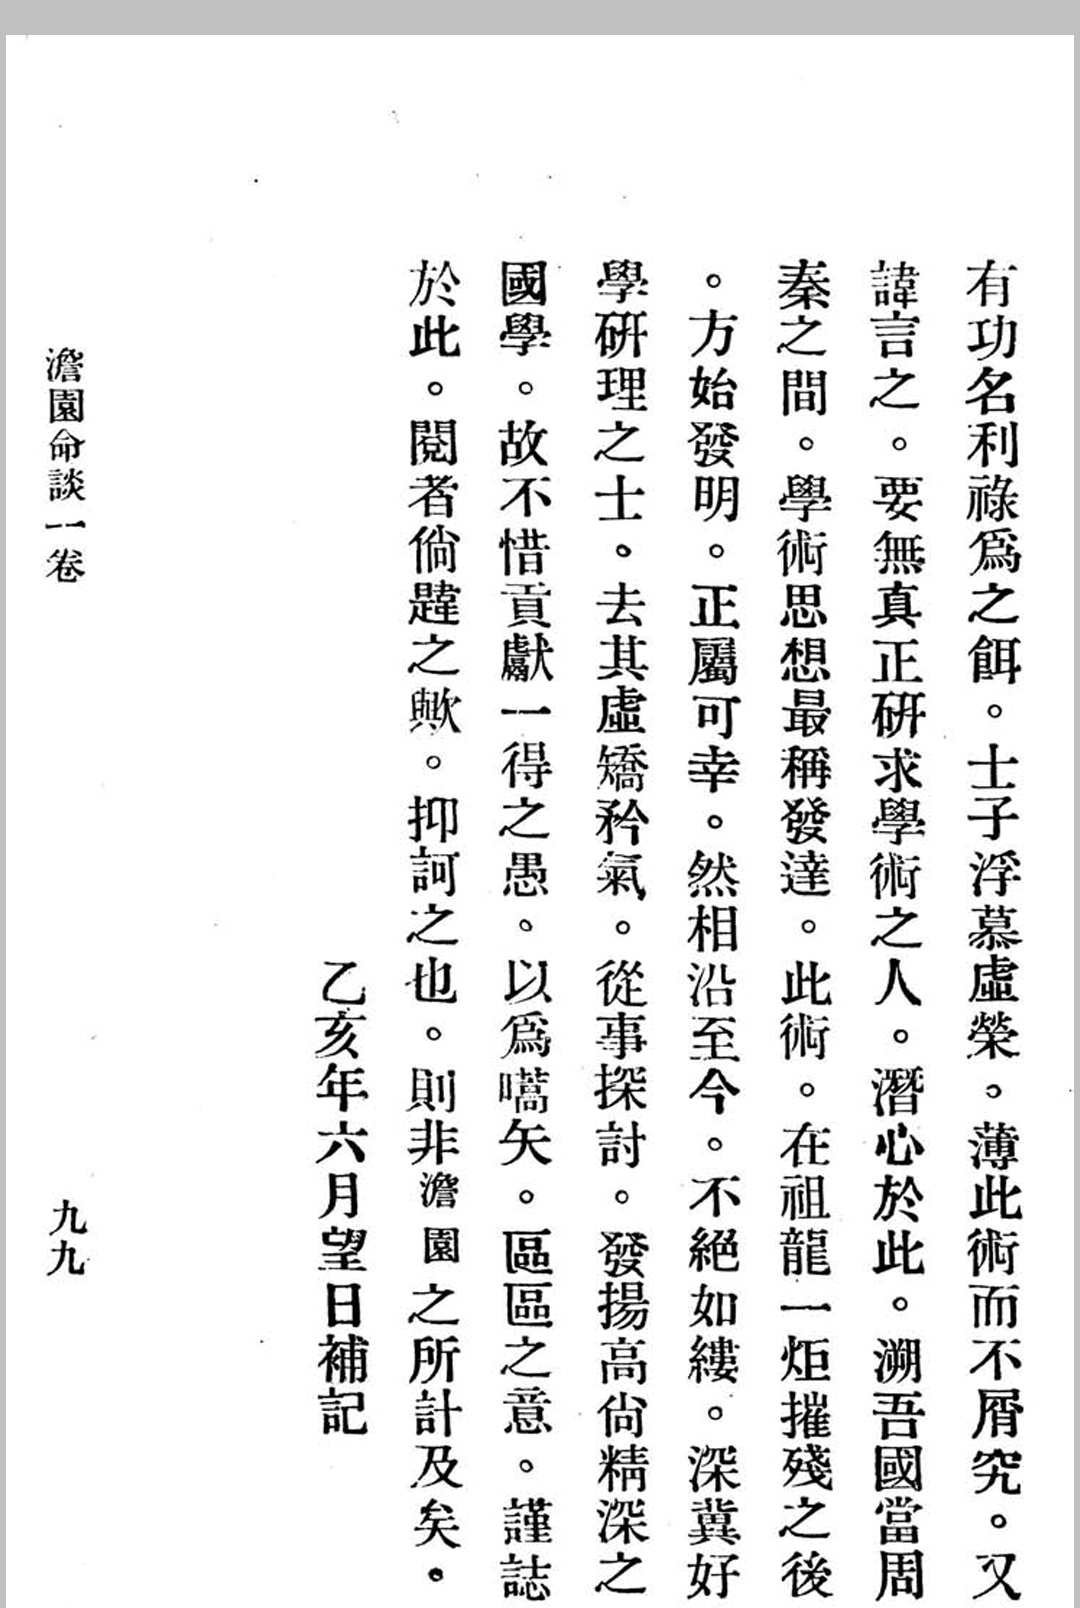 有功名利祿爲之餌。士子浮慕虛榮。薄此術而不屑究。又
諱言之。要無真正研求學術之人。潛心於此。溯吾國當周
秦之間。學術思想最稱發達。此術。在祖龍一炬摧殘之後
。方始發明。正屬可幸。然相沿至今。不絕如縷。深冀好
學研理之士。去其虛矯矜氣。從事探討。發揚高尙精深之
國學。故不惜貢獻一得之愚。以爲嚆矢。區區之意。謹誌
於此。閱者倘韙之歟。抑訶之也。則非澹園之所計及矣。
乙亥年六月望日補記
澹園命談一卷
九九